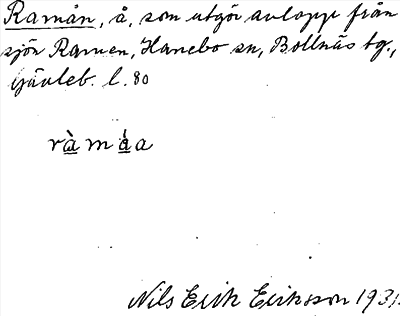 Ramån, å, som utgör avlopp från
sjön Ramen, Hanebo sn, Bollnäs tg.,
Gävleb. l. 80
ràmáa
Nils Erik Eriksson 1931.